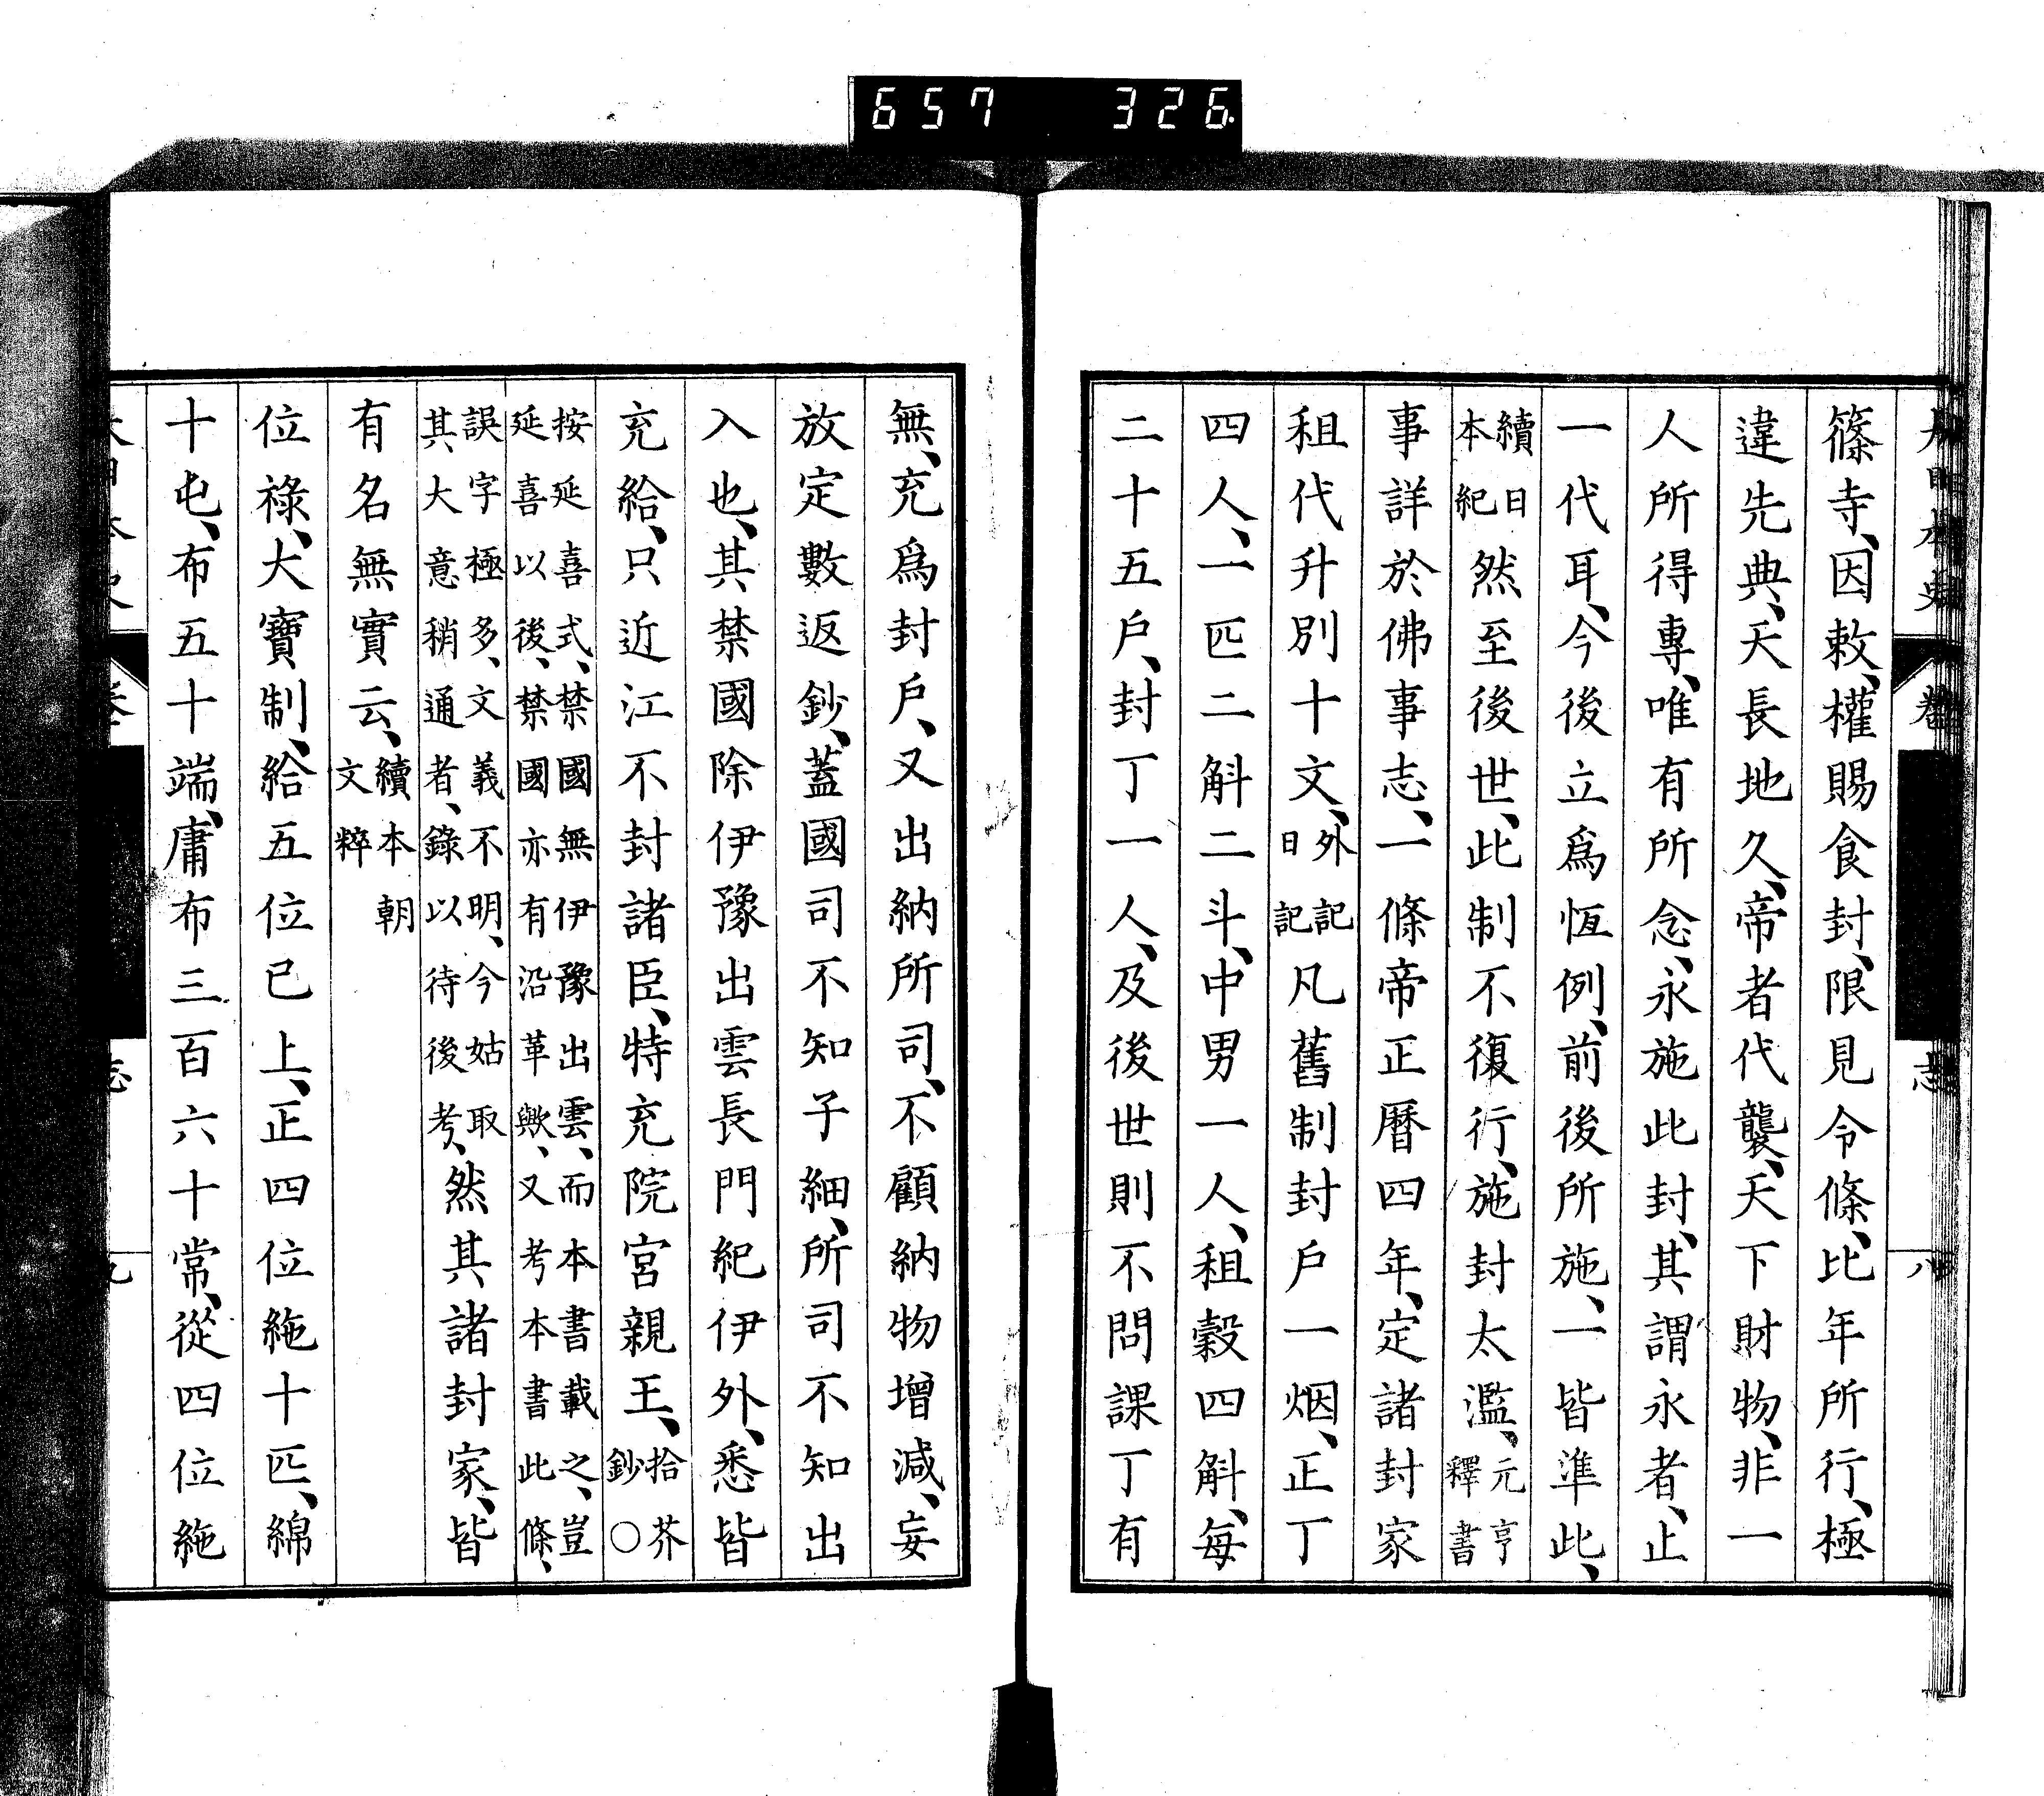 657 326.
志
篠寺、因敕、權賜食封、限見令條、比年所行、極
違先典、天長地久、帝者代襲、天下財物、非一
人所得專、唯有所念、永施此封、其謂永者、止
一代耳、今後立爲恆例、前後所施、一皆準此、
續日本紀然至後世、此制不復行、施封太濫、元亨釋書
事詳於佛事志、一條帝正曆四年、定諸封家
租代升別十文、外記日記凡舊制封戶一烟、正丁
四人、一匹二斛二斗、中男一人、租穀四斛、每
二十五戶、封丁一人、及後世則不問課丁有
無、充爲封戶、又出納所司、不顧納物增減、妄
放定數返鈔、蓋國司不知子細、所司不知出
入也、其禁國除伊豫出雲長門紀伊外、悉皆
充給、只近江不封諸臣、特充院宮親王、拾芥鈔○
按延喜式、禁國無伊豫出雲、而本書載之、豈
延喜以後、禁國亦有沿革歟、又考本書此條、
誤字極多、文義不明、今姑取
其、大意稍通者、錄以待後考、然其諸封家、皆
有名無實云、續本朝文粹
位祿、大寶制、給五位已上、正四位絁十匹、綿
十屯、布五十端、庸布三百六十常、從四位絁